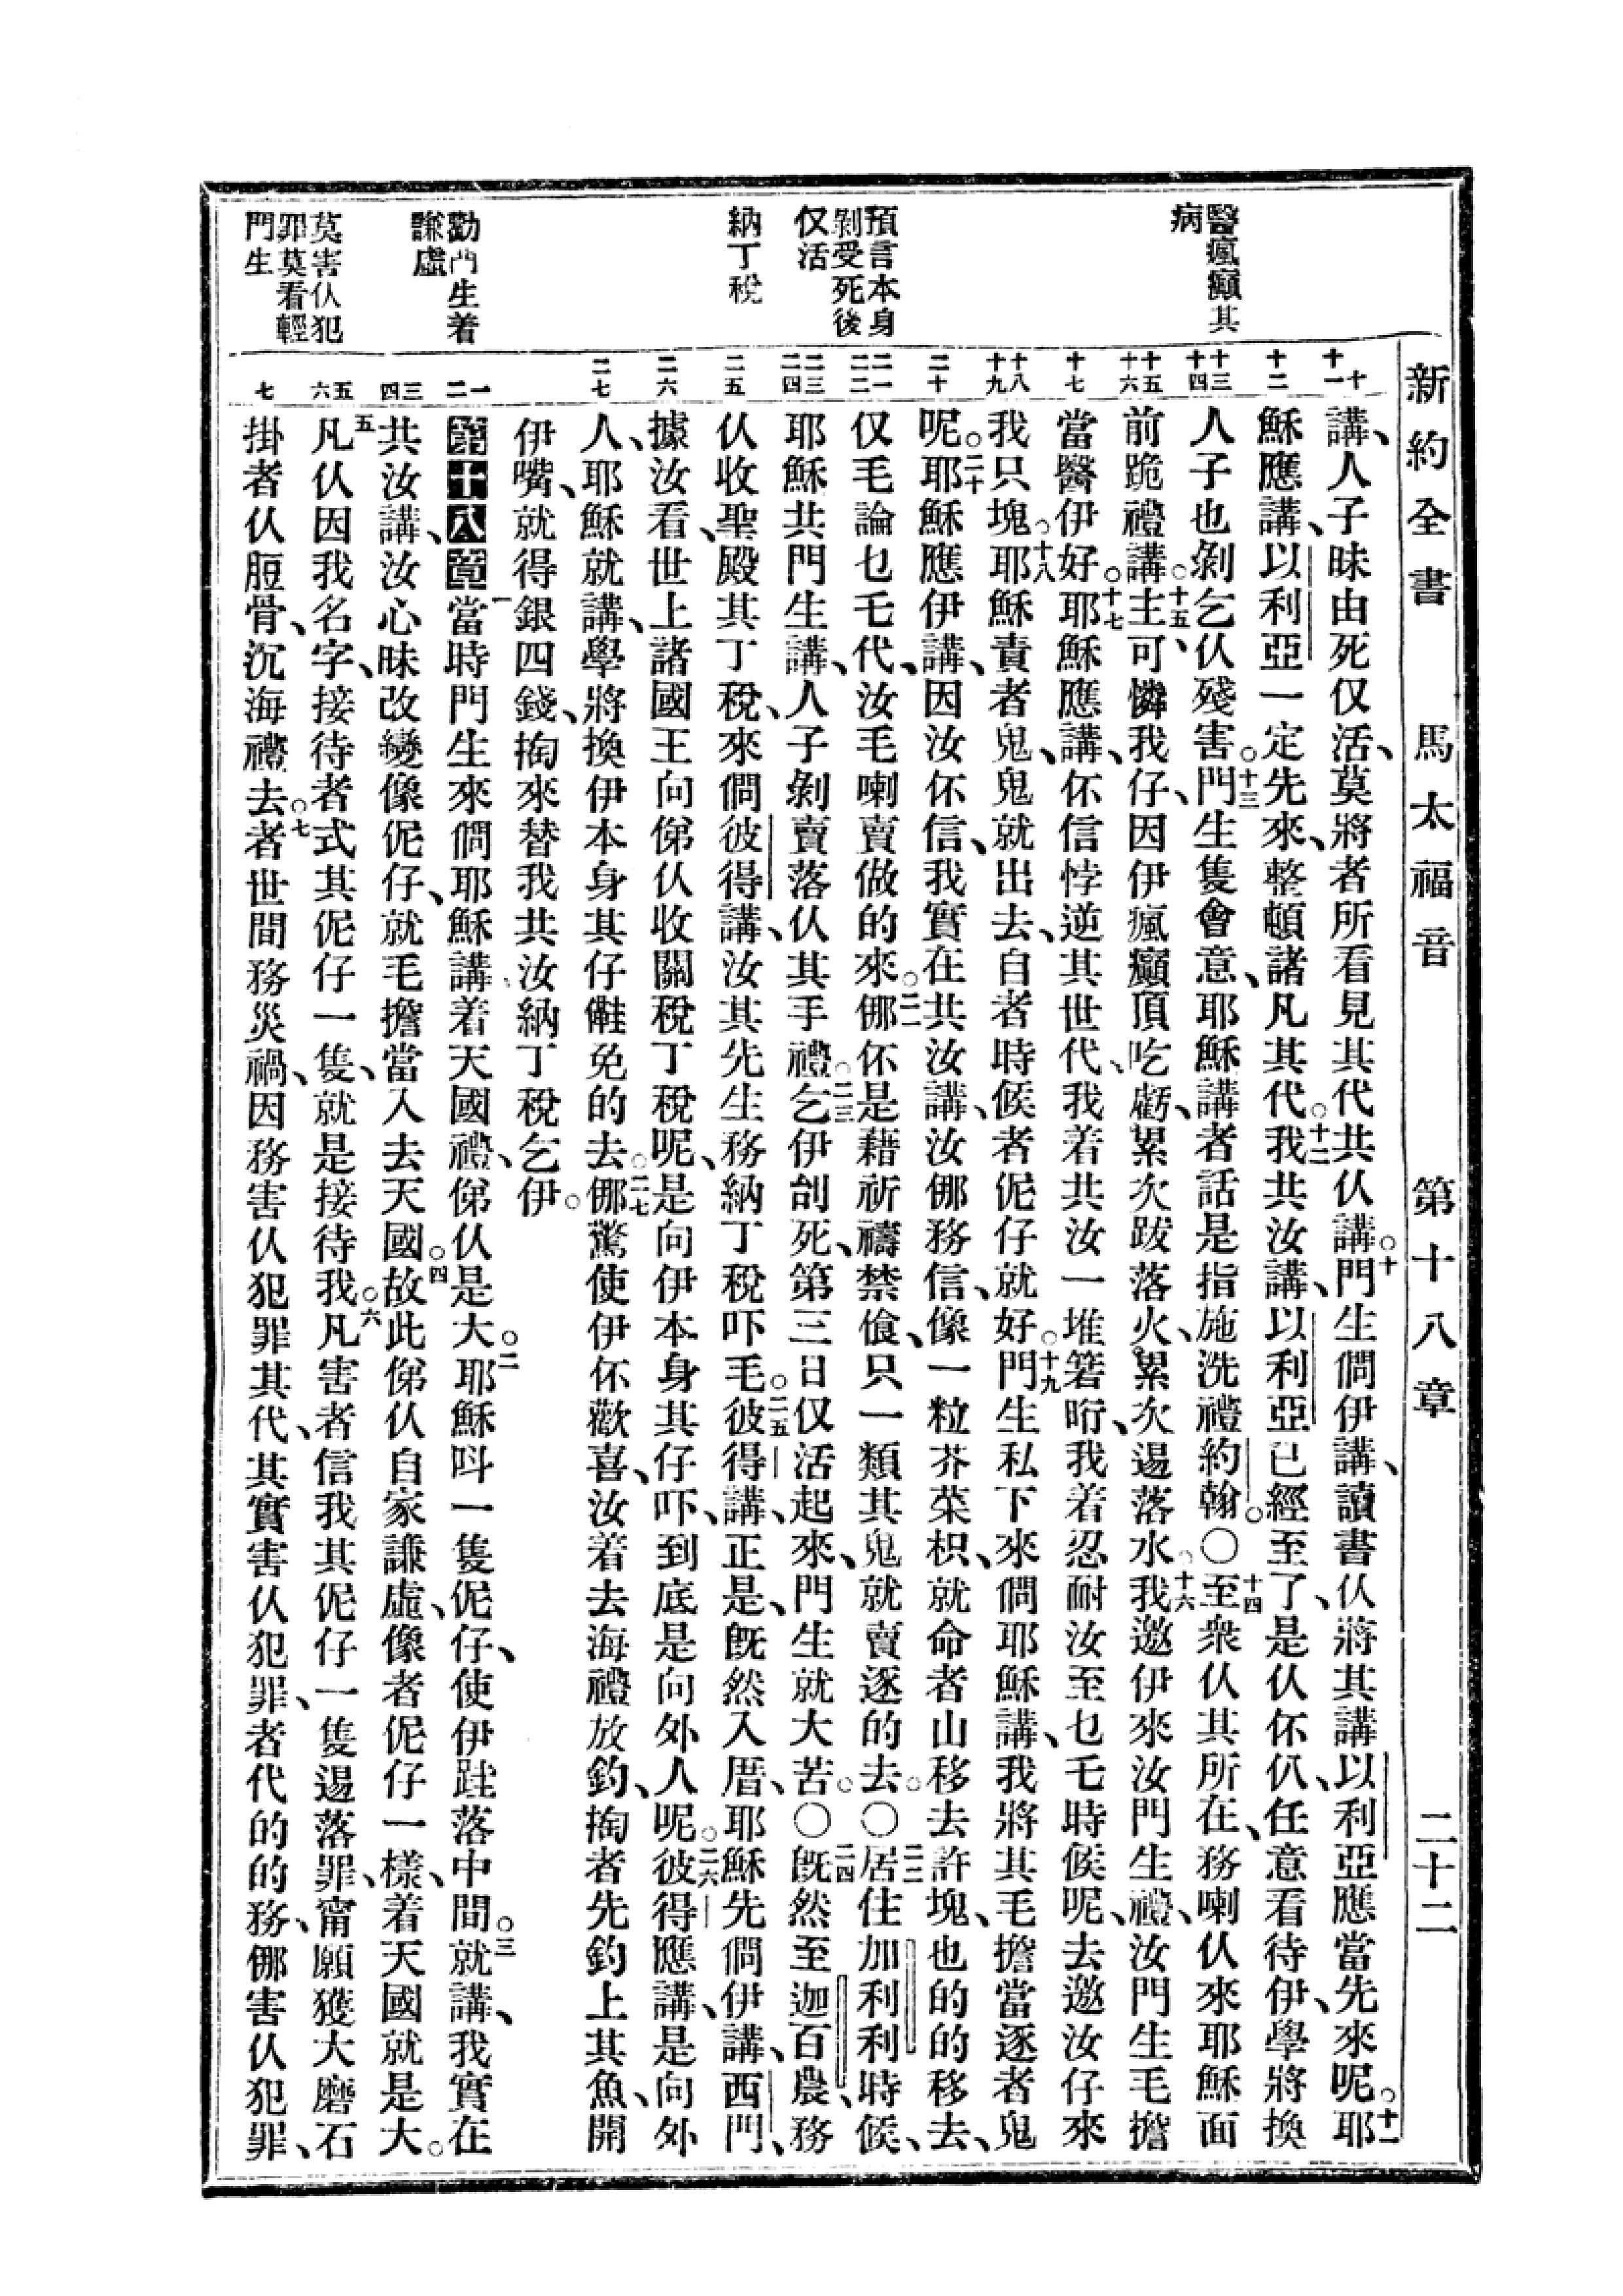 新約全書 馬太福音 第十八章 二十二
醫瘋癲其
病
預言本身
剝受死後
仅活
納丁稅
勸門生着
謙虛
莫害仫犯
罪莫看輕
門生
十
十一
十二
十三
十四
十五
十六
十七
十八
十九
二十
二一
二二
二三
二四
二五
二六
二七
一
二
三
四
五
六
七
講、人子昧由死仅活、莫將者所看見其代共仫講。十門生倜伊講、讀書仫將其講以利亞應當先來呢。十一耶
穌應講、以利亞一定先來、整頓諸凡其代。十二我共汝講、以利亞已經至了、是仫伓仈、任意看待伊、學將換
人子也剝乞仫殘害。十三門生隻會意、耶穌講者話是指施洗禮約翰。○十四至衆仫其所在、務喇仫來耶穌面
前跪禮講。十五主、可憐我仔、因伊瘋癲頂吃虧、累次跋落火、累次逿落水。十六我邀伊來汝門生禮、汝門生毛擔
當醫伊好。十七耶穌應講、伓信悖逆其世代、我着共汝一堆箬䀪、我着忍耐汝至乜乇時候呢、去邀汝仔來
我只塊。十八耶穌責者鬼、鬼就出去、自者時候者伲仔就好。十九門生私下來倜耶穌講、我將其毛擔當逐者鬼
呢。二十耶穌應伊講、因汝伓信、我實在共汝講、汝㑚務信、像一粒芥菜枳、就命者山移去許塊、也的的移去、
仅毛論乜乇代、汝毛喇賣做的來。二一㑚伓是藉祈禱禁飡、只一類其鬼就賣逐的去。○二二居住加利利時候、
耶穌共門生講、人子剝賣落仫其手禮。二三乞伊刣死、第三日仅活起來、門生就大苦。○二四旣然至迦百農、務
仫收聖殿其丁稅、來倜彼得講、汝其先生務納丁稅吓毛。二五彼得講、正是、旣然入厝、耶穌先倜伊講、西門、
據汝看、世上諸國王向俤仫收關稅丁稅呢、是向伊本身其仔吓、到底是向外人呢。二六彼得應講、是向外
人、耶穌就講、學將換伊本身其仔𠋫免的去。二七㑚驚使伊伓歡喜、汝着去海禮放釣、掏者先釣上其魚、開
伊嘴、就得銀四錢、掏來替我共汝納丁稅乞伊。
第十八章一當時門生來倜耶穌講、着天國禮、俤仫是大。二耶穌呌一隻伲仔、使伊跬落中間。三就講、我實在
共汝講、汝心昧改變像伲仔、就毛擔當入去天國。四故此俤仫自家謙虛、像者伲仔一樣、着天國就是大。
五凡仫因我名字、接待者式其伲仔一隻、就是接待我。六凡害者信我其伲仔一隻逿落罪、甯願獲大磨石
掛者仫脰骨、沉海禮去。七者世間務災禍、因務害仫犯罪其代、其實害仫犯罪、者代的的務、㑚害仫犯罪、